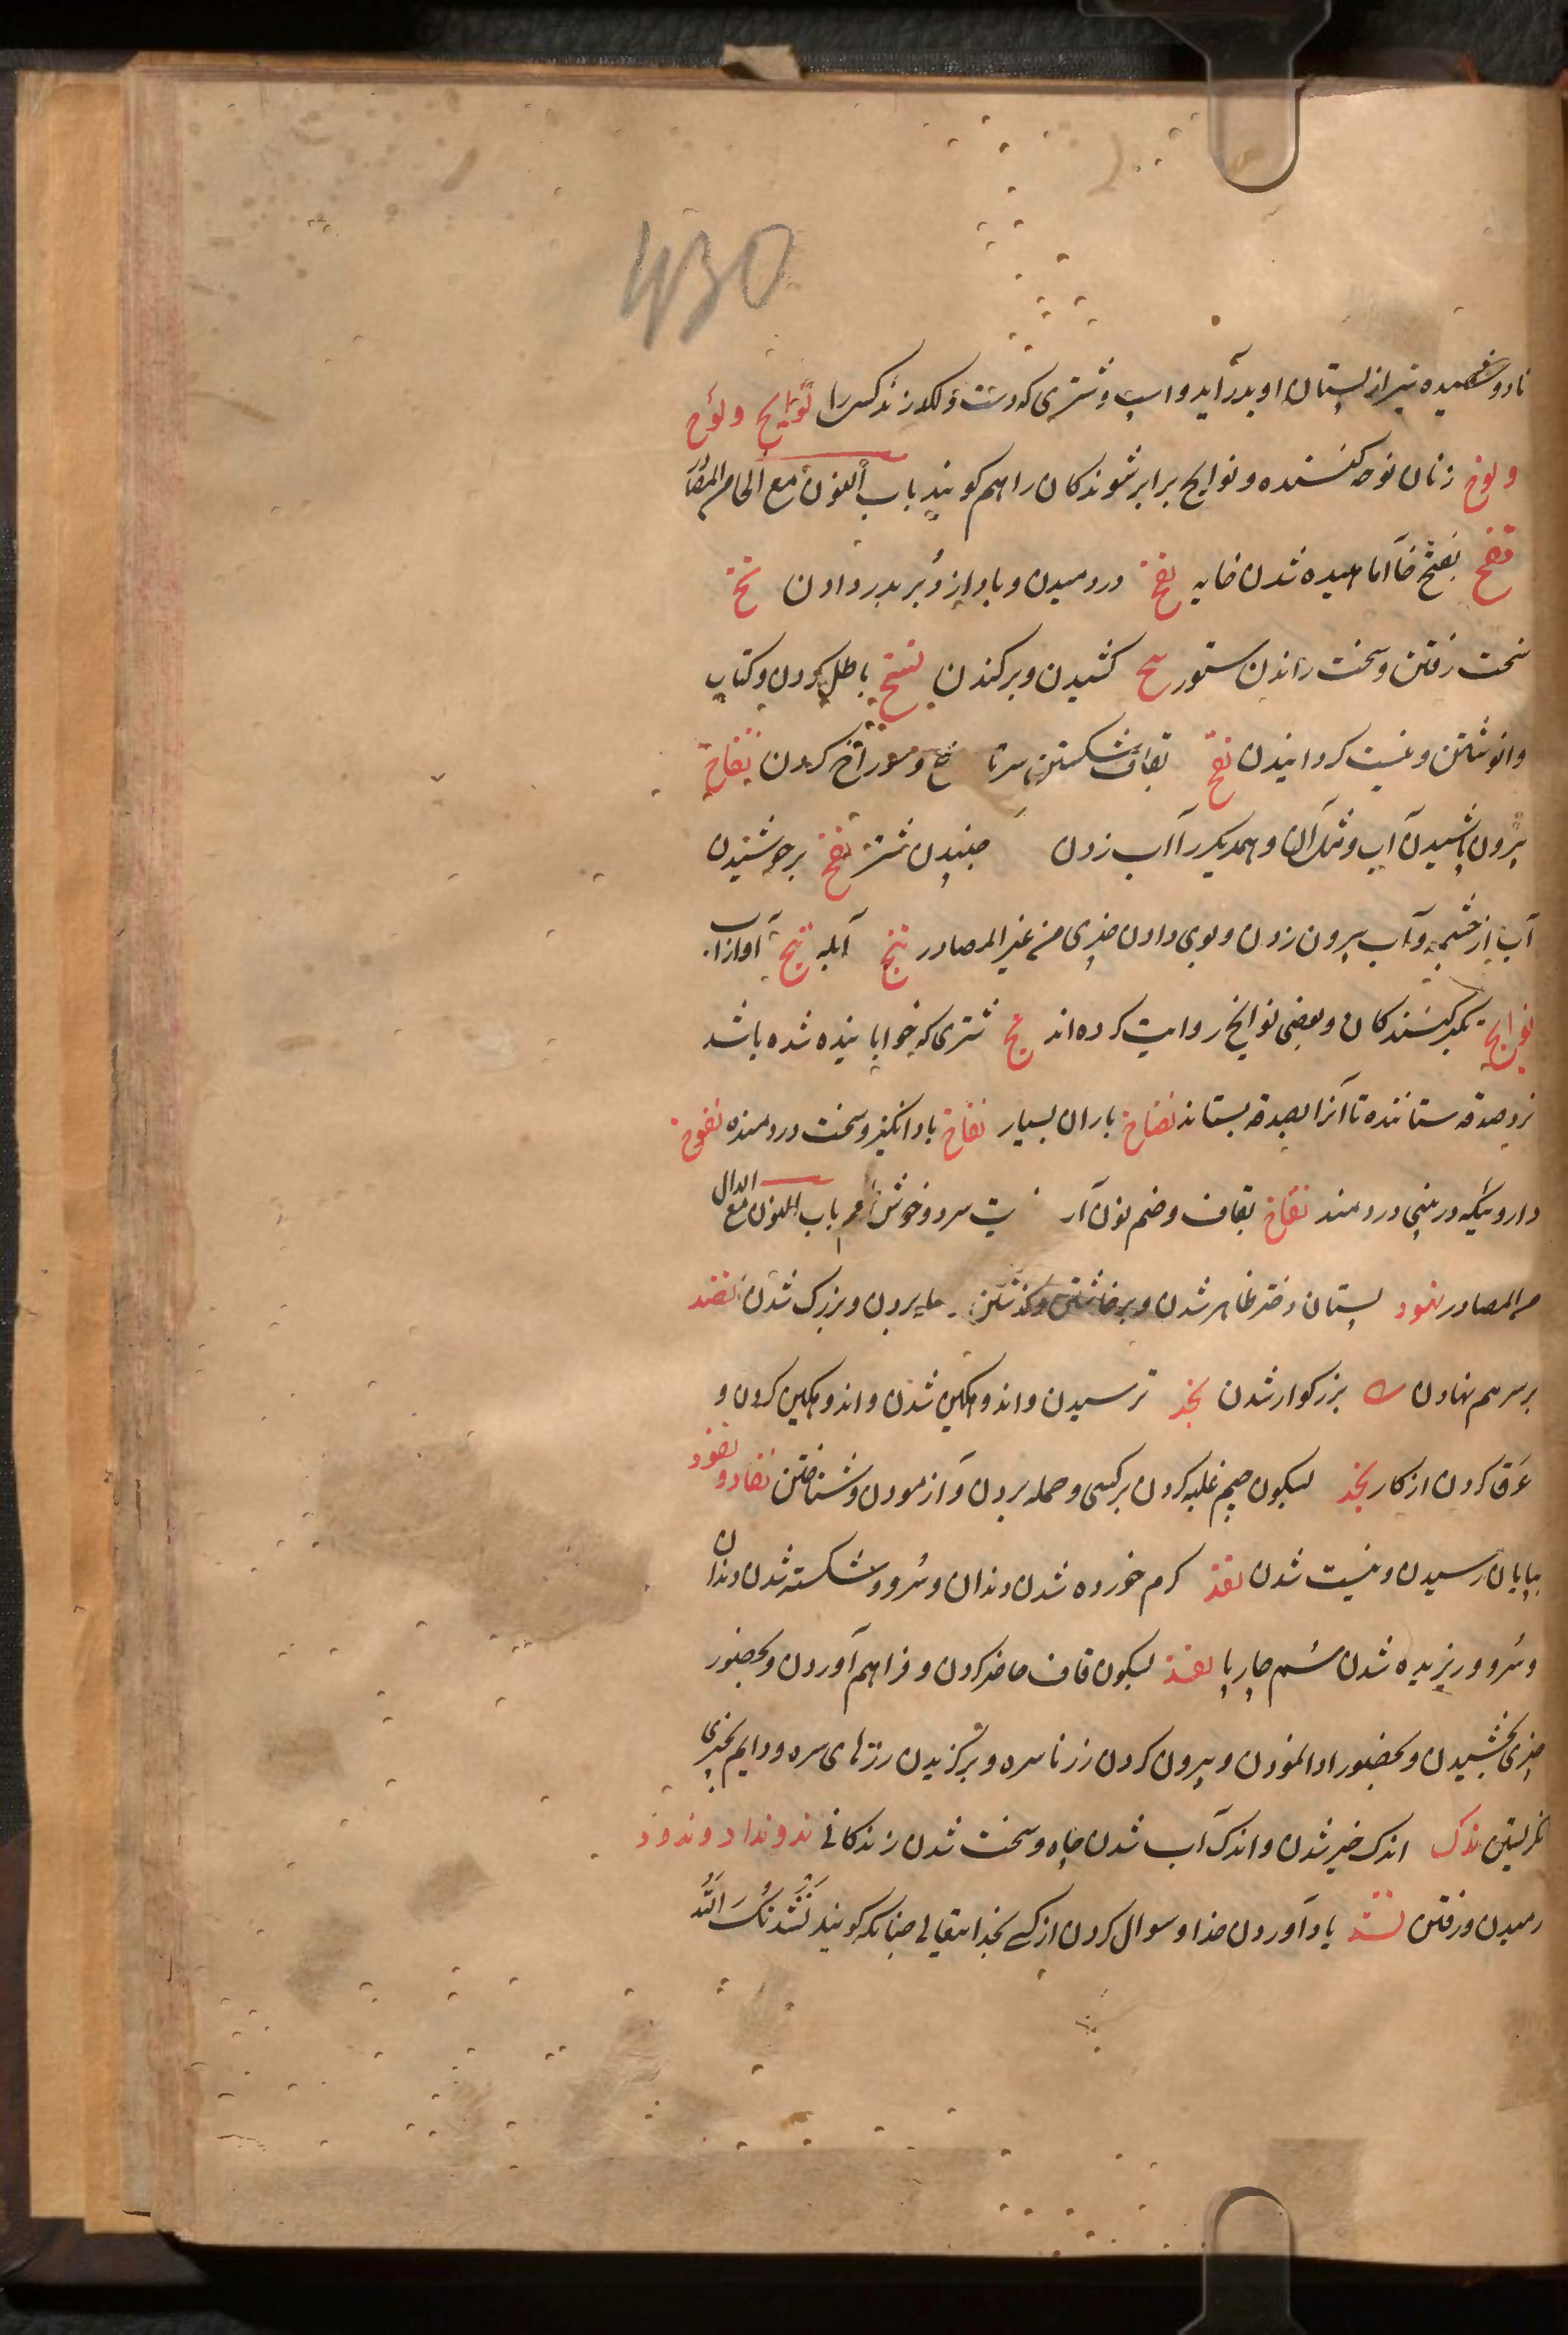 430
نادوشیده شیر از پستان او بدر آید و اسپ و شتری که دست و لکد زند کسی را نوایح و نوح
و نوح زنان نوحه کننده و نوایح برابر شوندکان را هم کویند باب النون مع الخا من المصا
نفخ بفتح فا آماهیده شدن خایه نفخ دردمیدن و باد از دبر بدر دادن نخ
سخت رفتن و سخت راندن ستور کشیدن و برکندن نسخ باطل کردن و کتاب
وانوشتن و نیست کردانیدن نقخ بقاف شکستن سر تا و مغز کردن نضاخ
برون پاشیدن آب و مثل آن و همدیکر را آب زدن جنبیدن شتر نضخ برجوشیدن
آب از چشمه و آب بیرون زدن و بوی دادن چیزی من غیر المصادر نبخ آبله آواز
تکبر کنندکان و بعضی نوابخ روایت کرده اند نخ شتری که خوابانیده شده باشد
نزد صدقه ستاننده تا آنرا بصدقه بستاند نضاخ باران بسیار نفاخ باد انکیز و سخت دردمنده نفوخ
داروئیکه در بینی دردمند نقاخ بقاف و ضم نون آب سرد و خوش باب النون مع الدال
من المصادر نهود پستان دختر ظاهر شدن و برخاستن و کذشتن بردن و بزرک شدن نضد
بر سر هم نهادن بزرکوار شدن نجد ترسیدن و اندوهکین شدن و اندوهکین کردن و
عرق کردن از کار نجد بسکون جیم غلبه کردن بر کسی و حمله بردن و آزمودن و شناختن نفاد و نفود
بپایان رسیدن و نیست شدن نقد کرم خورده شدن دندان و سرو و شکسته شدن دندان
و سرو و ریزیده شدن سم چارپا نقد بسکون قاف حاضر کردن و فراهم آوردن و بحضور
چیزی بخشیدن و بحضور ادا نمودن و بیرون کردن زر ناسره و برکزیدن زرهای سره و دایم بچیزی
نکریستن نکد اندک خیر شدن و اندک آب شدن چاه و سخت شدن زندکانی ند و نداد و ندود
رمیدن و رفتن نشد یاد آوردن خدا و سوال کردن از کسی بخدایتعالی چنانکه کویند نشدتک الله